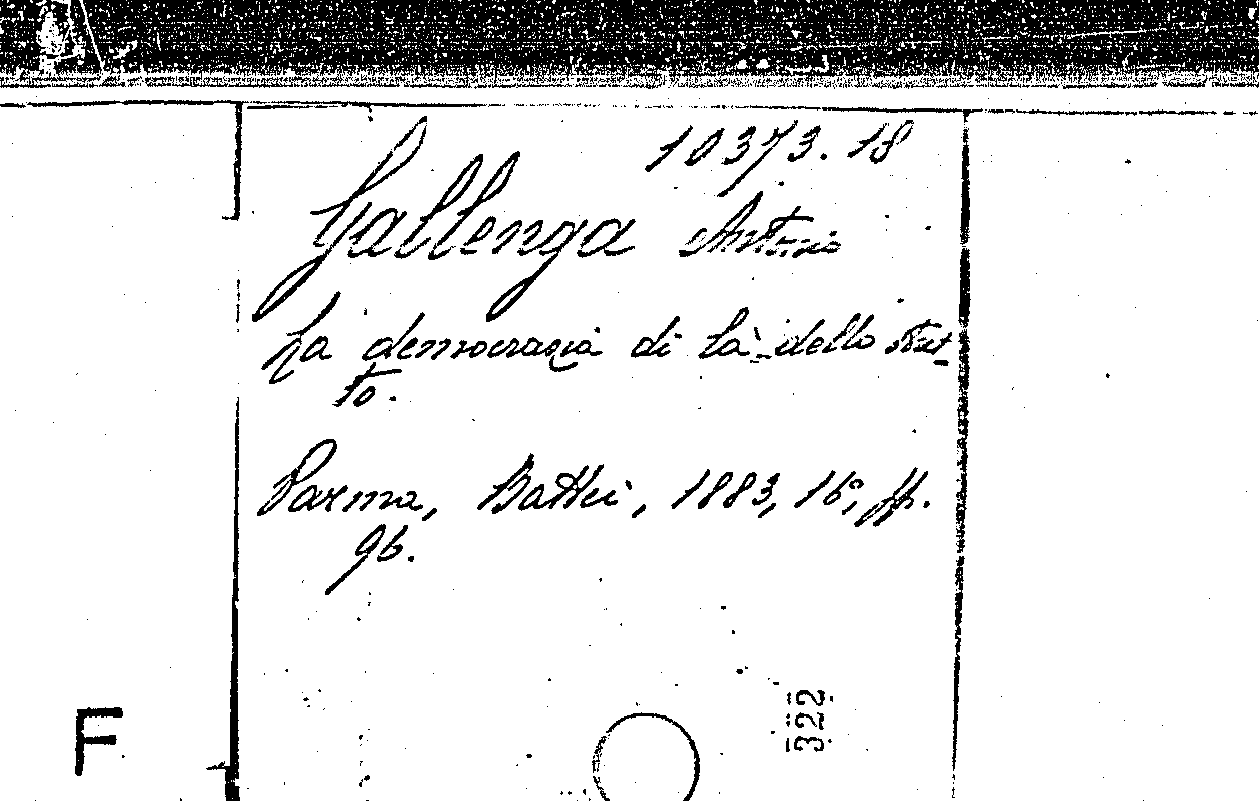 10373.18
Gallenga Antonio
La democrazia di là dello Stret-
to.
Parma, Battei, 1883, 16°, pp.
96.
322
F